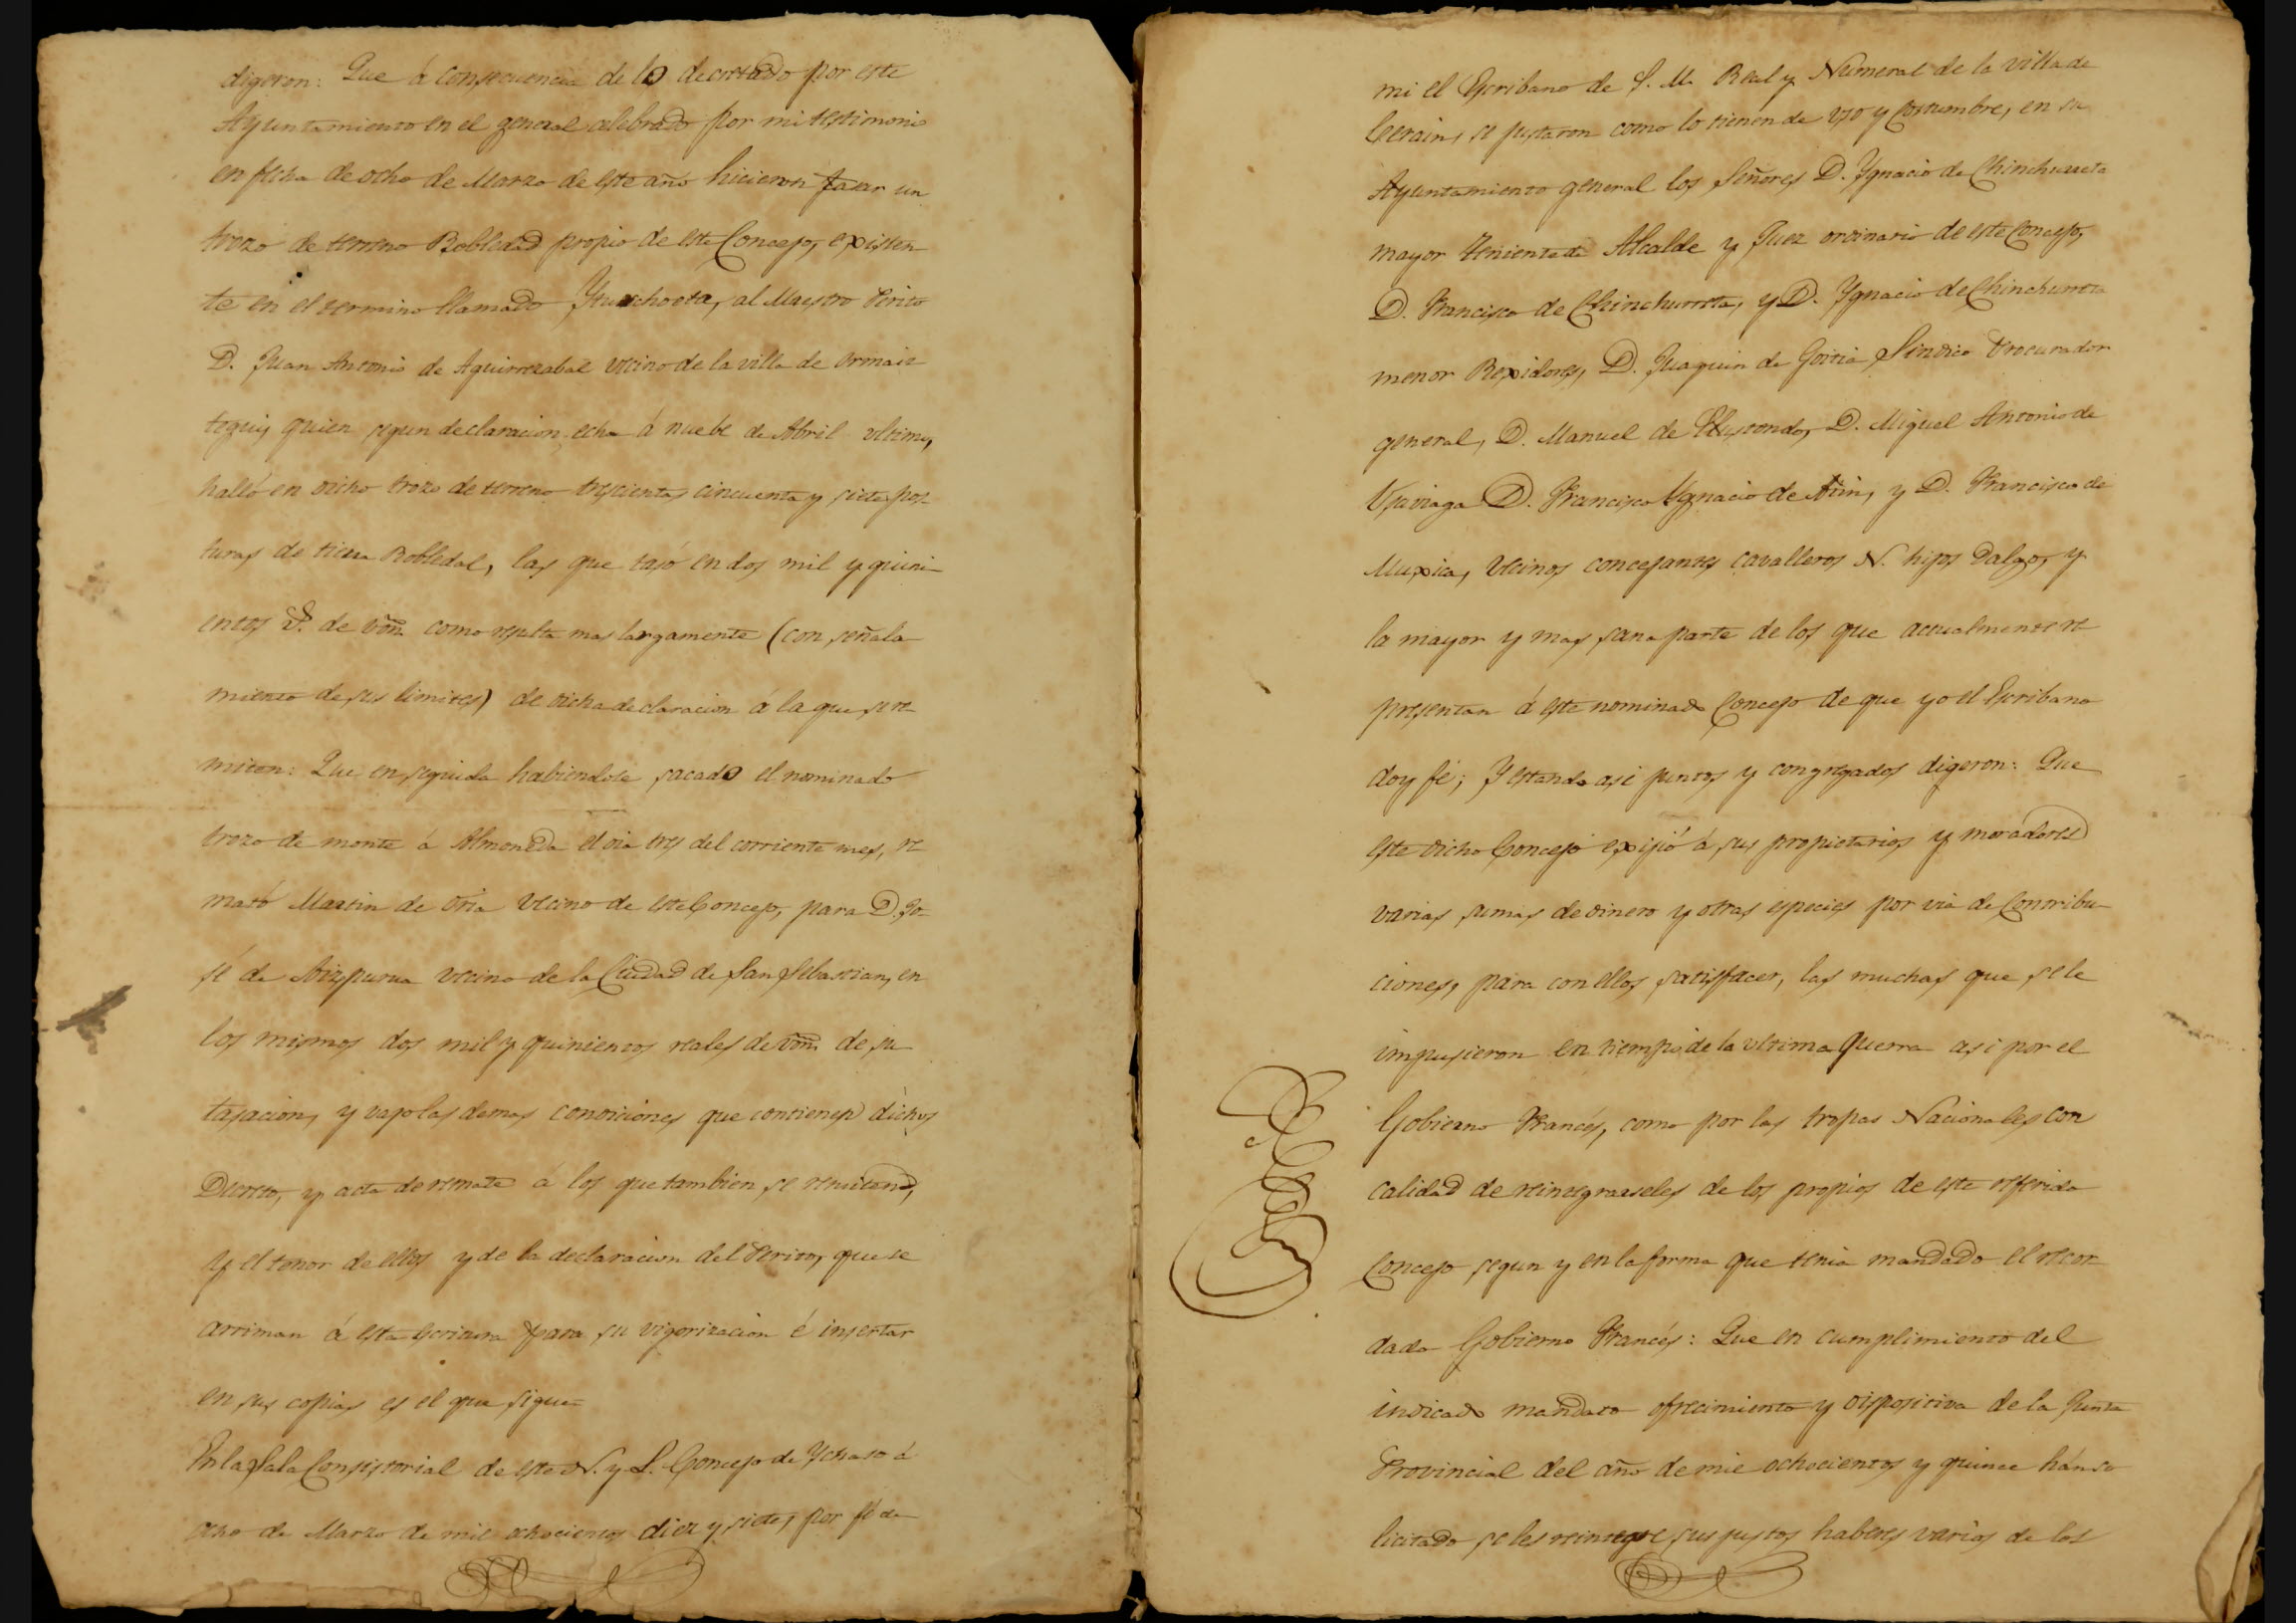 digeron: Que á consecuencia de lo decretado por este
Ayuntamiento en el general celebrado por mi testimonio
en fecha de ocho de Marzo de este año hicieron tasar un
trozo de terreno Robledad propio de este Concejo, existen
te en el termino llamado al Maestro Perito
D. Juan Antonio de Aguirrezabal vecino de la villa de Ormaiz
tegui, quien segun declaracion echa á nuebe de Abril ultimo,
halló en dicho trozo de terreno trescientas cincuenta y siete pos-
turas de tierra Robledal, las que tasó en dos mil y quini-
entos rs. de von. como resulta mas largamente (con señala
miento de sus limites) de dicha declaracion á la que se re
miten: Que en seguida habiendose sacado el nominado
trozo de monte á Almoneda el dia tres del corriente mes, re
mató Martin de Oria vecino de este Concejo, para D. Jo-
sé de Aizpurua vecino de la Ciudad de San Sebastian, en
los mismos dos mil y quinientos reales de von. de su
tasacion, y vajo las demas condiciones que contienen dichos
Decreto, y acta de remate á los que tambien se remiten,
y el tenor de ellos y de la declaracion del Perito, que se
arriman á esta escritura para su vigorizacion é insertar
en sus copias es el que sigue
En la Sala Consistorial de este N. y L. Concejo de Ychaso á
ocho de Marzo de mil ochocientos diez y siete, por fé de
mi el Escribano de S. M. Real y Numeral de la villa de
Beerain, se justaron como lo tienen de uso y costumbre, en su
Ayuntamiento general los Señores D. Ygnacio de Chinchurreta
mayor Teniente de Alcalde y Juez ordinario de este Concejo,
D. Francisco de Chinchurreta, y D. Ygnacio de Chinchurreta
menor Rexidores, D. Juaquin de Goitia Sindico Procurador
general, D. Manuel de D. Miguel Antonio de
D. Francisco Ygnacio de y D. Francisco de
Muxica, vecinos concejantes cavalleros N. hijos Dalgo, y
la mayor y mas sana parte de los que actualmente re
presentan á este nominado Concejo de que yo el Escribano
doy fé; Y estando asi juntos y congregados digeron: Que
este dicho Concejo exijió á sus propietarios y moradores
varias sumas de dinero y otras especies por via de Contribu-
ciones, para con ellos satisfacer, las muchas que se le
impusieron en tiempo de la ultima Guerra asi por el
Gobierno Francés, como por las tropas Nacionales con
calidad de reintegrarseles de los propios de este referido
Concejo segun y en la forma que tenia mandado el recor
dado Gobierno Francés: Que en cumplimiento del
indicado mandato ofrecimiento y dispositiva de la Junta
Provincial del año de mil ochocientos y quince han so
licitado se les reintegre sus justos haberes varios de los